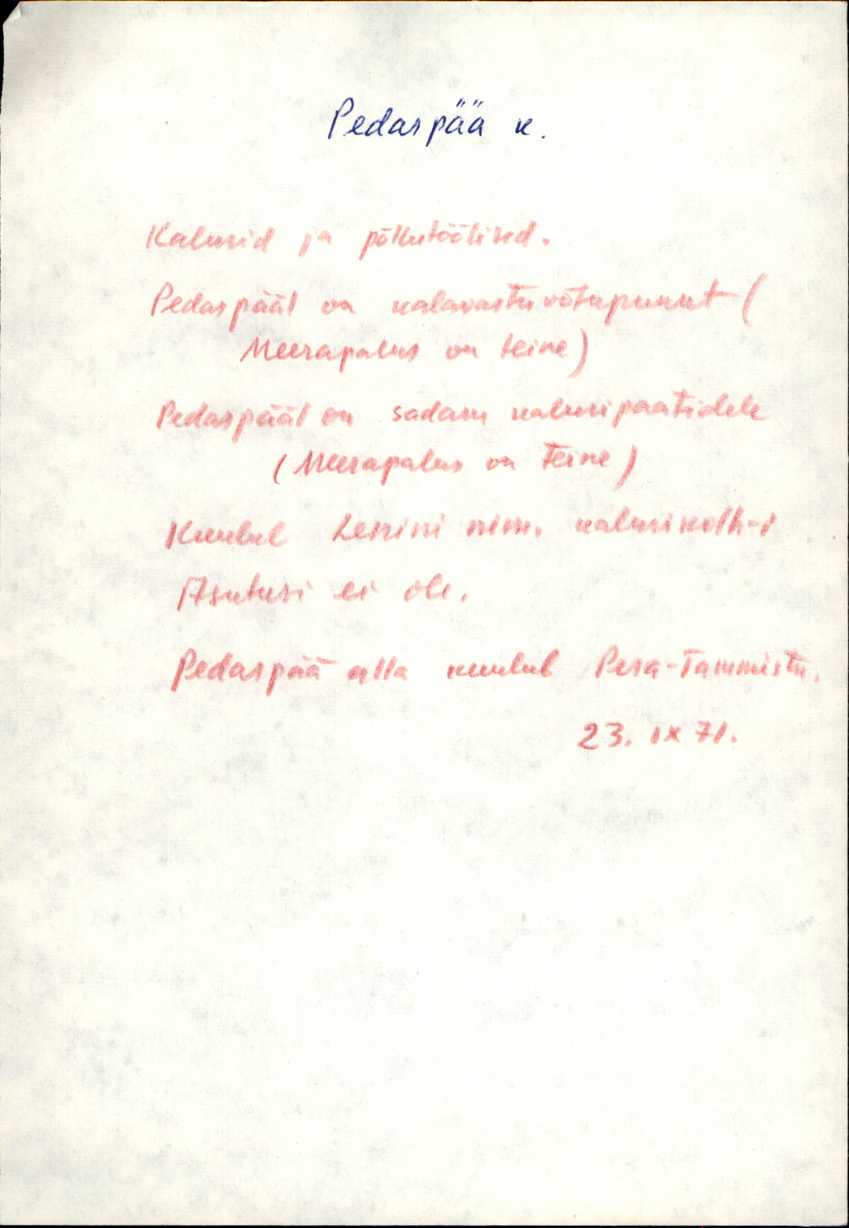 Pedaspää k.
Kalurid ja põllutöölised.
Pedaspääl on kalavastuvõtupunkt (
Meerapalus on teine)
Pedaspääl on sadam kaluripaatidele
(Meerapalus on teine)
Kuulub Lenini nim. kalurikolh-i
Asutusi ei ole.
Pedaspää alla kuulub Pera-Tammistu.
23. IX 71.